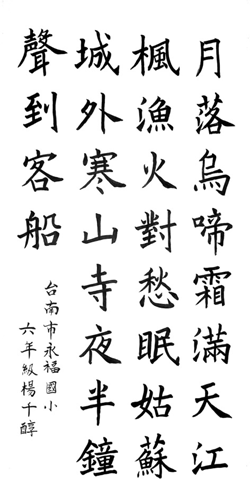 月落烏啼霜滿天江
楓漁火對愁眠姑蘇
城外寒山寺夜半鐘
聲到客船
台南市永福國小
六年級楊千醇